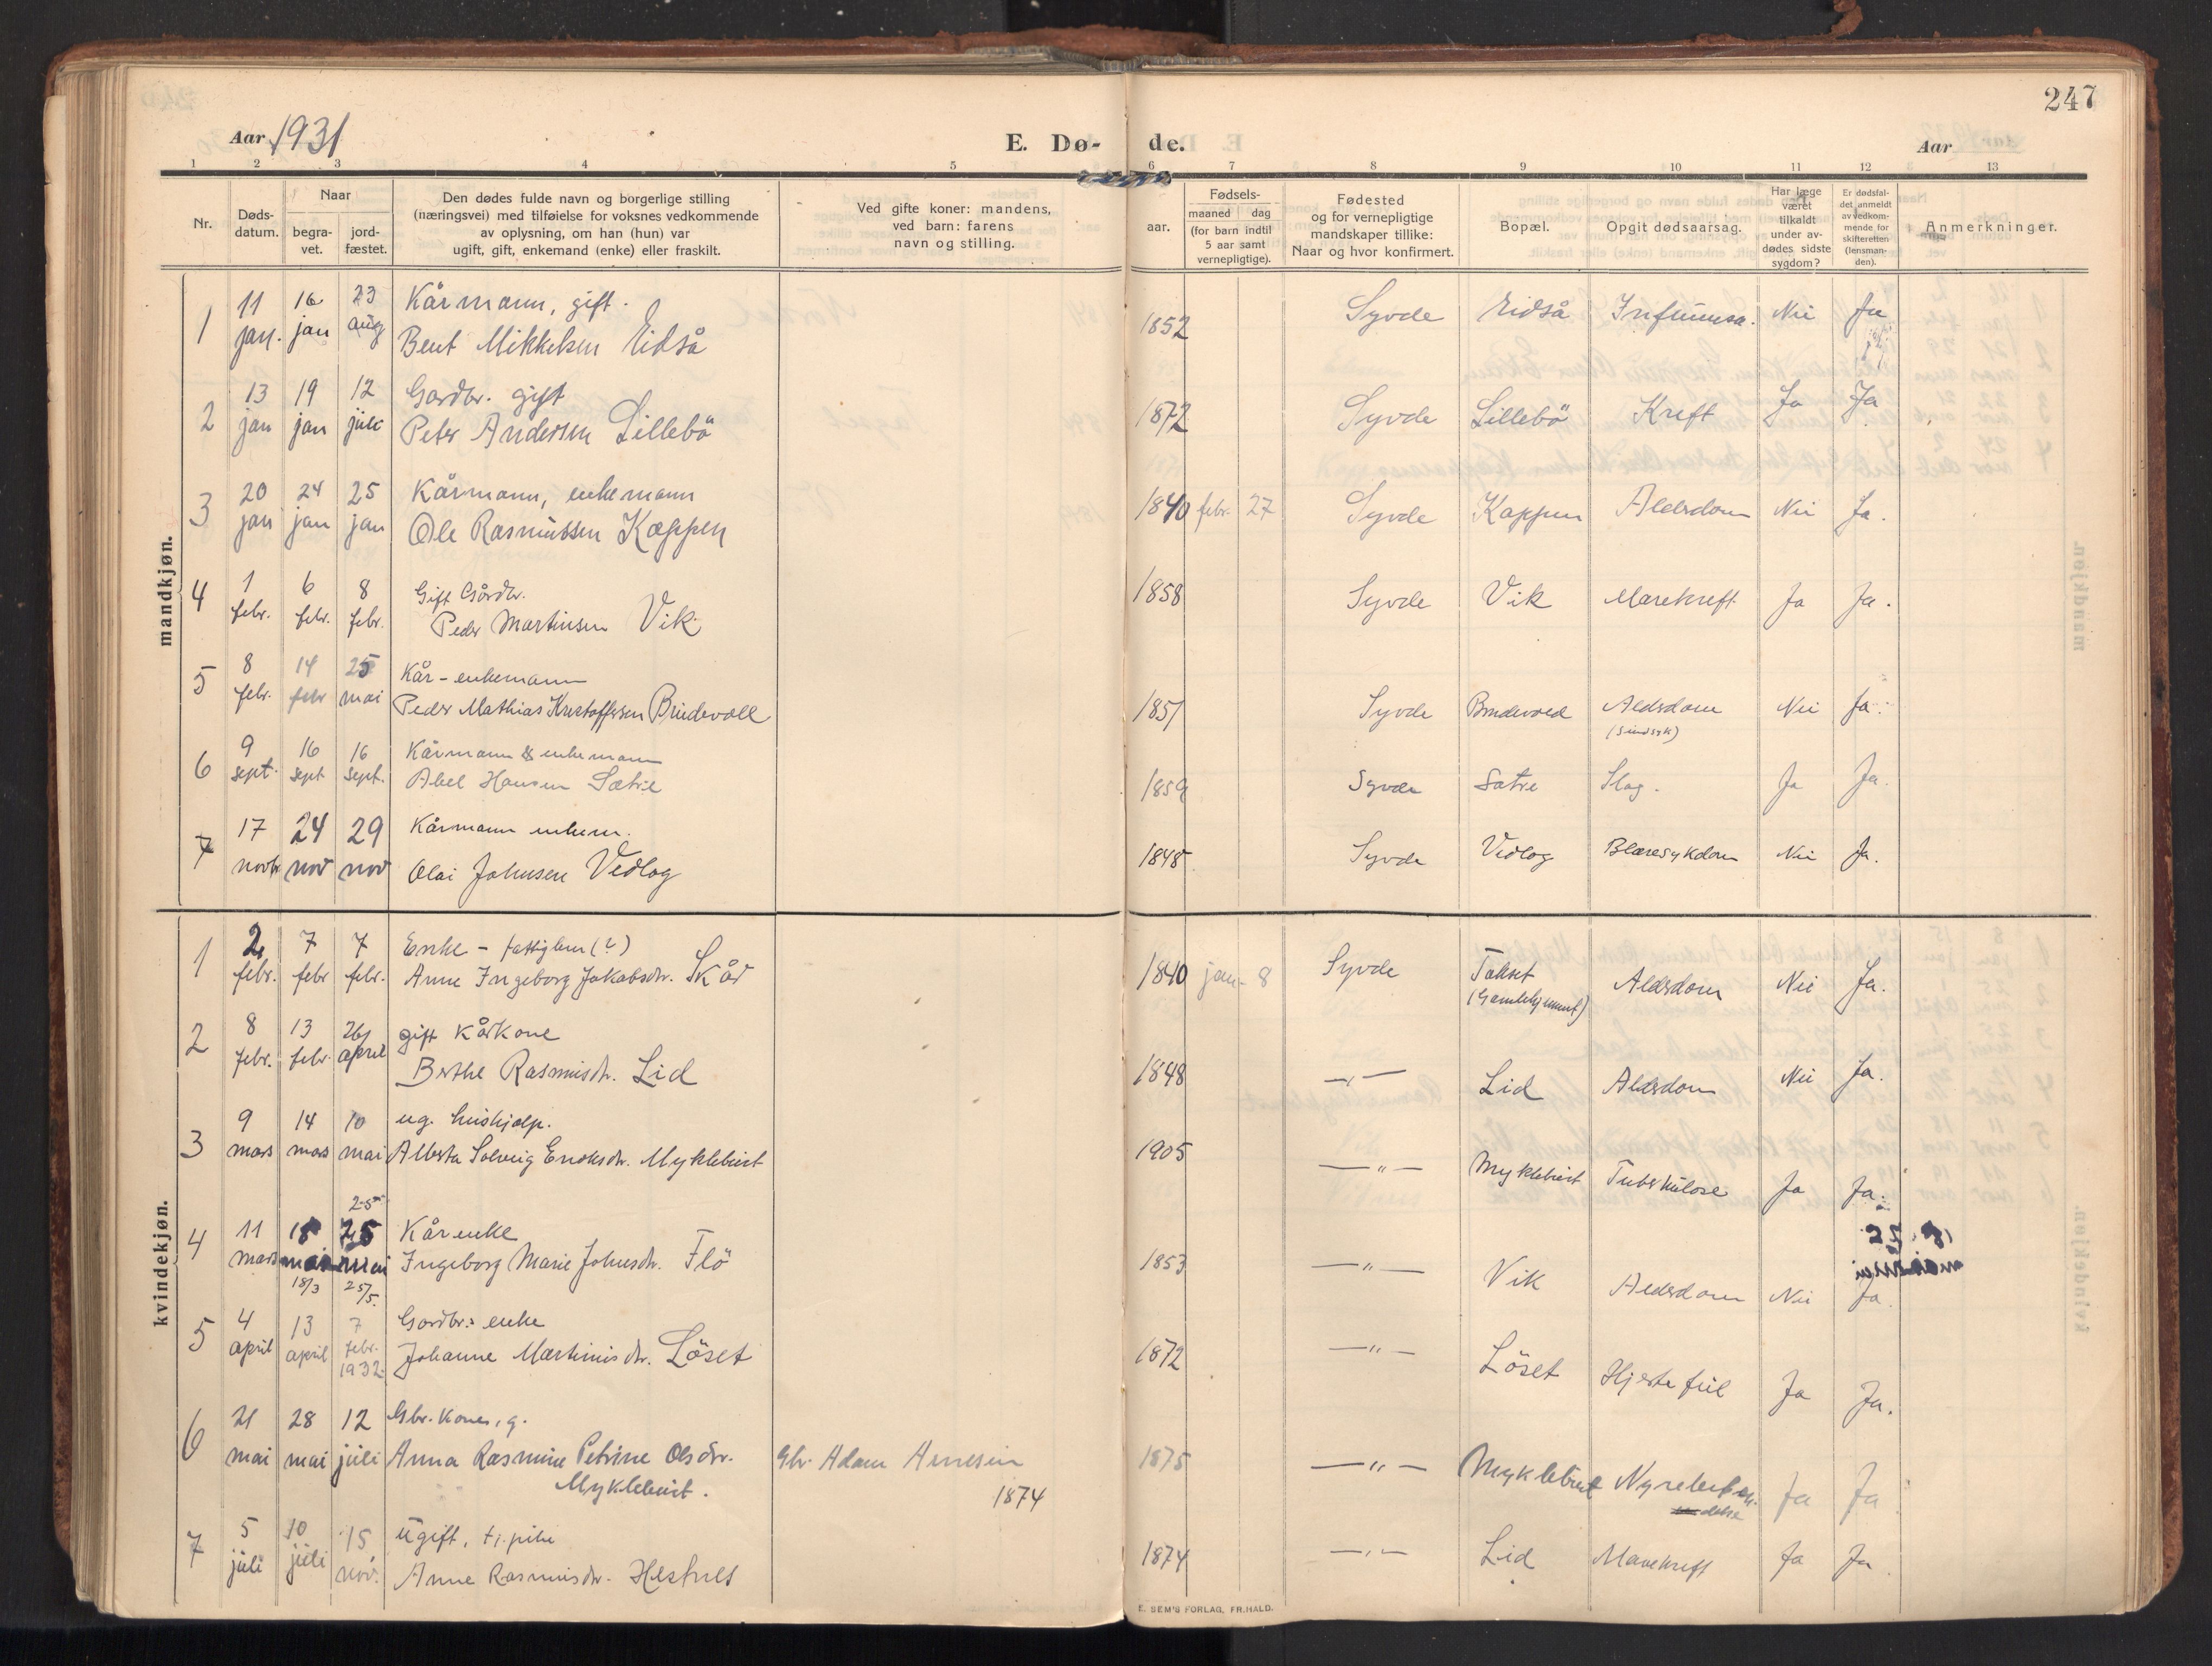 247
Aar 1931
E. Dø- de.
Aar
1 2 3 4 5 6 7 8 9 10 11 12 13
Nr.
Døds-
datum.
Naar
begra-
vet.
jord-
fæstet.
Den dødes fulde navn og borgerlige stilling
(næringsvei) med tilføielse for voksnes vedkommende
av oplysning, om han (hun) var
ugift, gift, enkemand (enke) eller fraskilt.
Ved gifte koner: mandens,
ved barn: farens
navn og stilling.
aar.
Fødsels-
maaned dag
(for barn indtil
5 aar samt
vernepligtige).
Fødested
og for vernepligtige
mandskaper tillike:
Naar og hvor konfirmert.
Bopæl.
Opgit dødsaarsag.
Har læge
været
tilkaldt
under av-
dødes sidste
sygdom?
Er dødsfal-
det anmeldt
av vedkom-
mende for
skifteretten
(lensman-
den).
Anmerkninger.
mandkjøn.
1 11 16 23 Kårmann, gift.
jan. jan aug Bent Mikkelsen Eidså 1852 Syvde Eidså Influensa. Nei Ja
2 13 19 12 Gardbr. gift
jan jan juli Peter Andersen Lillebö 1872 Syvde Lillebö Kreft Ja Ja
3 20 24 25 Kårmann, enkemann
jan jan jan Ole Rasmussen Kappen 1840 febr. 27 Syvde Kappen Aldersdom Nei Ja.
4 1 6 8 Gift Gårdbr.
febr. febr. febr. Peder Martinsen Vik 1858 Syvde Vik Mavekreft Ja Ja.
5 8 14 25 Kår-enkemann
febr. febr mai Peder Mathias Kristoffersen Brudevoll 1851 Syvde Brudevold Aldersdom Nei Ja.
(sindsyk)
6 9 16 16 Kårmann & enkemann
sept. sept sept. Abel Hansen Sætre 1859 Syvde Sætre Slag. Ja Ja.
7 17 24 29 Kårmann enkem.
novbr nov nov Olai Johnsen Vedlog 1848 Syvde Vedlog Blæresykdom Nei Ja.
kvindekjøn.
1 2 7 7 Enke - fattiglem (?)
febr. febr febr. Anne Ingeborg Jakobsdtr. Skår 1840 jan. 8 Syvde Takset Aldersdom Nei Ja.
(Gamlehjemmet)
2 8 13 26 gift Kårkone
febr. febr. april Berthe Rasmusdtr. Lid 1848 —„— Lid Aldersdom Nei Ja.
3 9 14 10 ug. hushjelp.
mars mars mai Alberta Solveig Enoksdtr. Myklebust 1905 —„— Myklebust Tuberkulose Ja Ja.
25/5
4 11 18 25 Kårenke
mars mai Ingeborg Marie Johnsdtr. Flö 1853 —„— Vik Aldersdom Nei Ja.
18/3 25/5.
5 4 13 7 Gardbr: enke
april april febr. Johanne Martinusdtr. Löset 1872 —„— Löset Hjertefeil Ja Ja.
1932
6 21 28 12 Gbr. kone, g.
mai mai juli Anna Rasmine Petrine Olsdtr. Gbr. Adam Arnesen 1875 —„— Myklebust Ja Ja
Myklebust. 1874
7 5 10 15 ugift, tj. pike
juli juli nov. Anne Rasmusdtr. Hestnes 1874 —„— Lid Mavekreft Ja Ja
E. SEM'S FORLAG, FR.HALD.